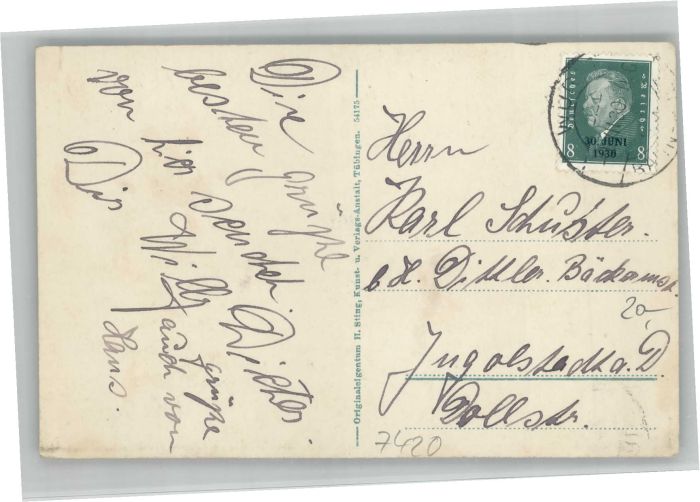 Die
besten Grüße
von hier sendet
Dir Willy Dieter.
Grüße
auch von
Hans.
Originaleigentum H. Sting, Kunst- u. Verlags-Anstalt, Tübingen. 54175
Deutsches Reich
30. JUNI
1930
8 8
Herrn
Karl Schuster.
b. H. Dittler. Bäckermst.
20-
Ingolstadt a. D.
Dollstr.
7420